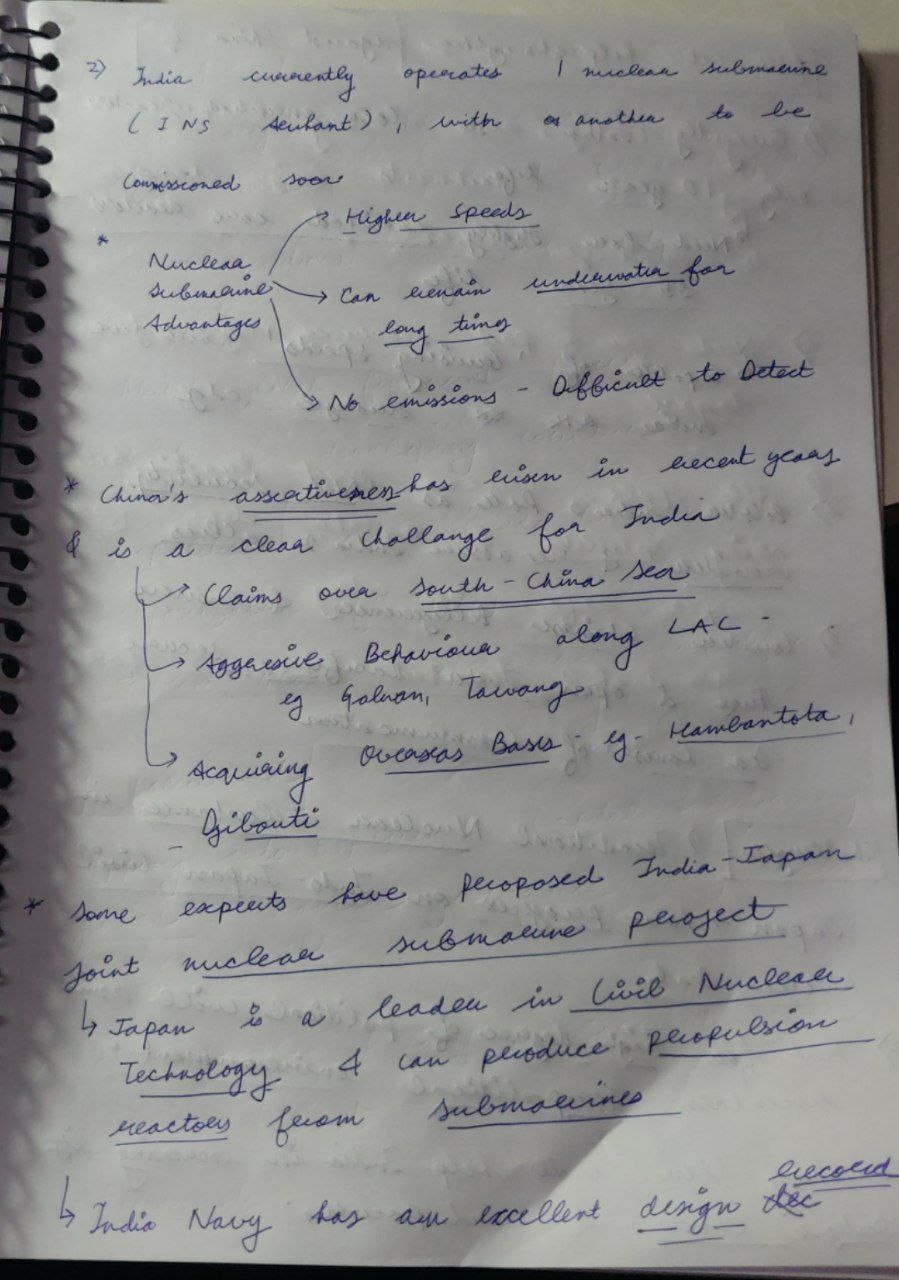 2) India currently operates 1 nuclear submarine
(INS Arihant), with another to be
Commissioned soon
* Nuclear Submarine Advantages
→ Higher Speeds
→ Can remain underwater for
long times
→ No emissions - Difficult to Detect
* China's assertiveness has risen in recent years
& is a clear challange for India
→ Claims over South-China Sea
→ Aggressive Behaviour along LAC -
eg Galwan, Tawang
→ Acquiring Overseas Bases - eg - Hambantota,
Djibouti
* Some experts have proposed India-Japan
joint nuclear submarine project
↳ Japan is a leader in Civil Nuclear
Technology & can produce propulsion
reactors from submarines
↳ India Navy has an excellent design record